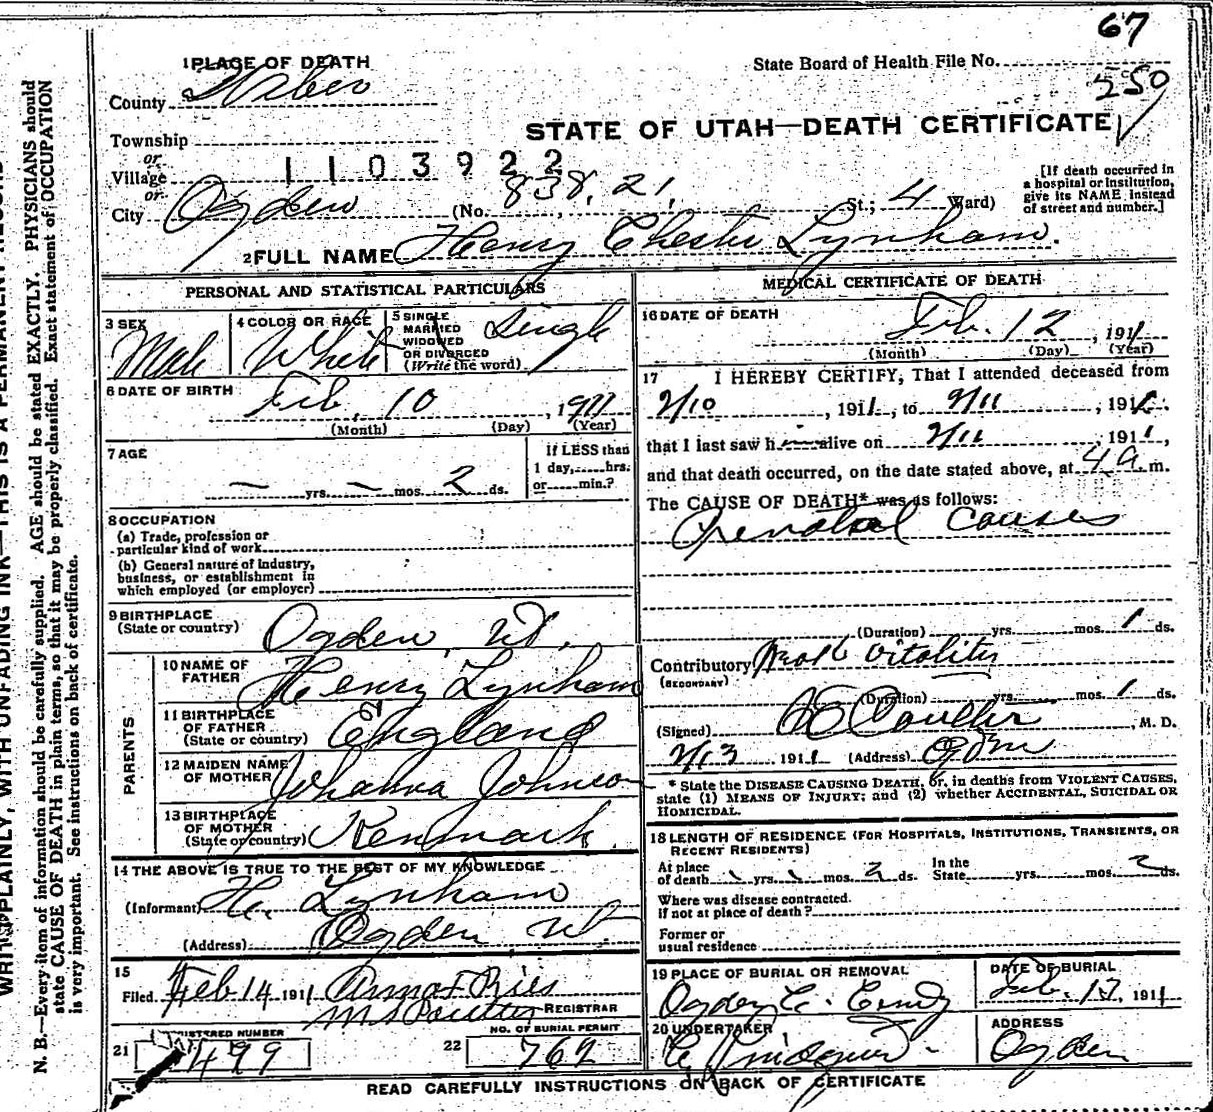 67
1 PLACE OF DEATH
State Board of Health File No.
250
County Weber
STATE OF UTAH—DEATH CERTIFICATE
Township
or
Village 1103922
or
City Ogden (No. 838, 21, St.; 4 Ward)
[If death occurred in a hospital or institution, give its NAME instead of street and number.]
2 FULL NAME Henry Chester Lynham.
PERSONAL AND STATISTICAL PARTICULARS
3 SEX Male
4 COLOR OR RACE White
5 SINGLE MARRIED WIDOWED OR DIVORCED (Write the word) Single
6 DATE OF BIRTH Feb. 10, 1911
(Month) (Day) (Year)
7 AGE
— yrs. — mos. 2 ds.
If LESS than 1 day, hrs. or min.?
8 OCCUPATION
(a) Trade, profession or particular kind of work
(b) General nature of Industry, business, or establishment in which employed (or employer)
9 BIRTHPLACE (State or country) Ogden, Ut.
PARENTS
10 NAME OF FATHER Henry Lynham
11 BIRTHPLACE OF FATHER (State or country) England
12 MAIDEN NAME OF MOTHER Johanna Johnson
13 BIRTHPLACE OF MOTHER (State or country) Denmark.
14 THE ABOVE IS TRUE TO THE BEST OF MY KNOWLEDGE
(Informant) H. Lynham
(Address) Ogden Ut
15
Filed Feb 14 1911 REGISTRAR
REGISTERED NUMBER
21 499
NO. OF BURIAL PERMIT
22 762
MEDICAL CERTIFICATE OF DEATH
16 DATE OF DEATH Feb. 12, 1911
(Month) (Day) (Year)
17 I HEREBY CERTIFY, That I attended deceased from
2/10, 1911, to 2/11, 1911.
that I last saw him alive on 2/11, 1911,
and that death occurred, on the date stated above, at 4 a. m.
The CAUSE OF DEATH* was as follows:
Prenatal causes
(Duration) yrs. mos. 1 ds.
Contributory (SECONDARY) Weak vitality
(Duration) yrs. mos. 1 ds.
(Signed) Coulter M. D.
2/13 1911 (Address) Ogden
* State the DISEASE CAUSING DEATH, or, in deaths from VIOLENT CAUSES, state (1) MEANS OF INJURY; and (2) whether ACCIDENTAL, SUICIDAL OR HOMICIDAL.
18 LENGTH OF RESIDENCE (FOR HOSPITALS, INSTITUTIONS, TRANSIENTS, OR RECENT RESIDENTS)
At place of death yrs. mos. 2 ds. In the State yrs. mos. 2 ds.
Where was disease contracted.
if not at place of death?
Former or usual residence
19 PLACE OF BURIAL OR REMOVAL Ogden C.
DATE OF BURIAL Feb. 1911
20 UNDERTAKER
ADDRESS Ogden
READ CAREFULLY INSTRUCTIONS ON BACK OF CERTIFICATE
WRITE PLAINLY, WITH UNFADING INK—THIS IS A PERMANENT RECORD.
N. B.—Every item of information should be carefully supplied. AGE should be stated EXACTLY. PHYSICIANS should
state CAUSE OF DEATH in plain terms, so that it may be properly classified. Exact statement of OCCUPATION
is very important. See instructions on back of certificate.